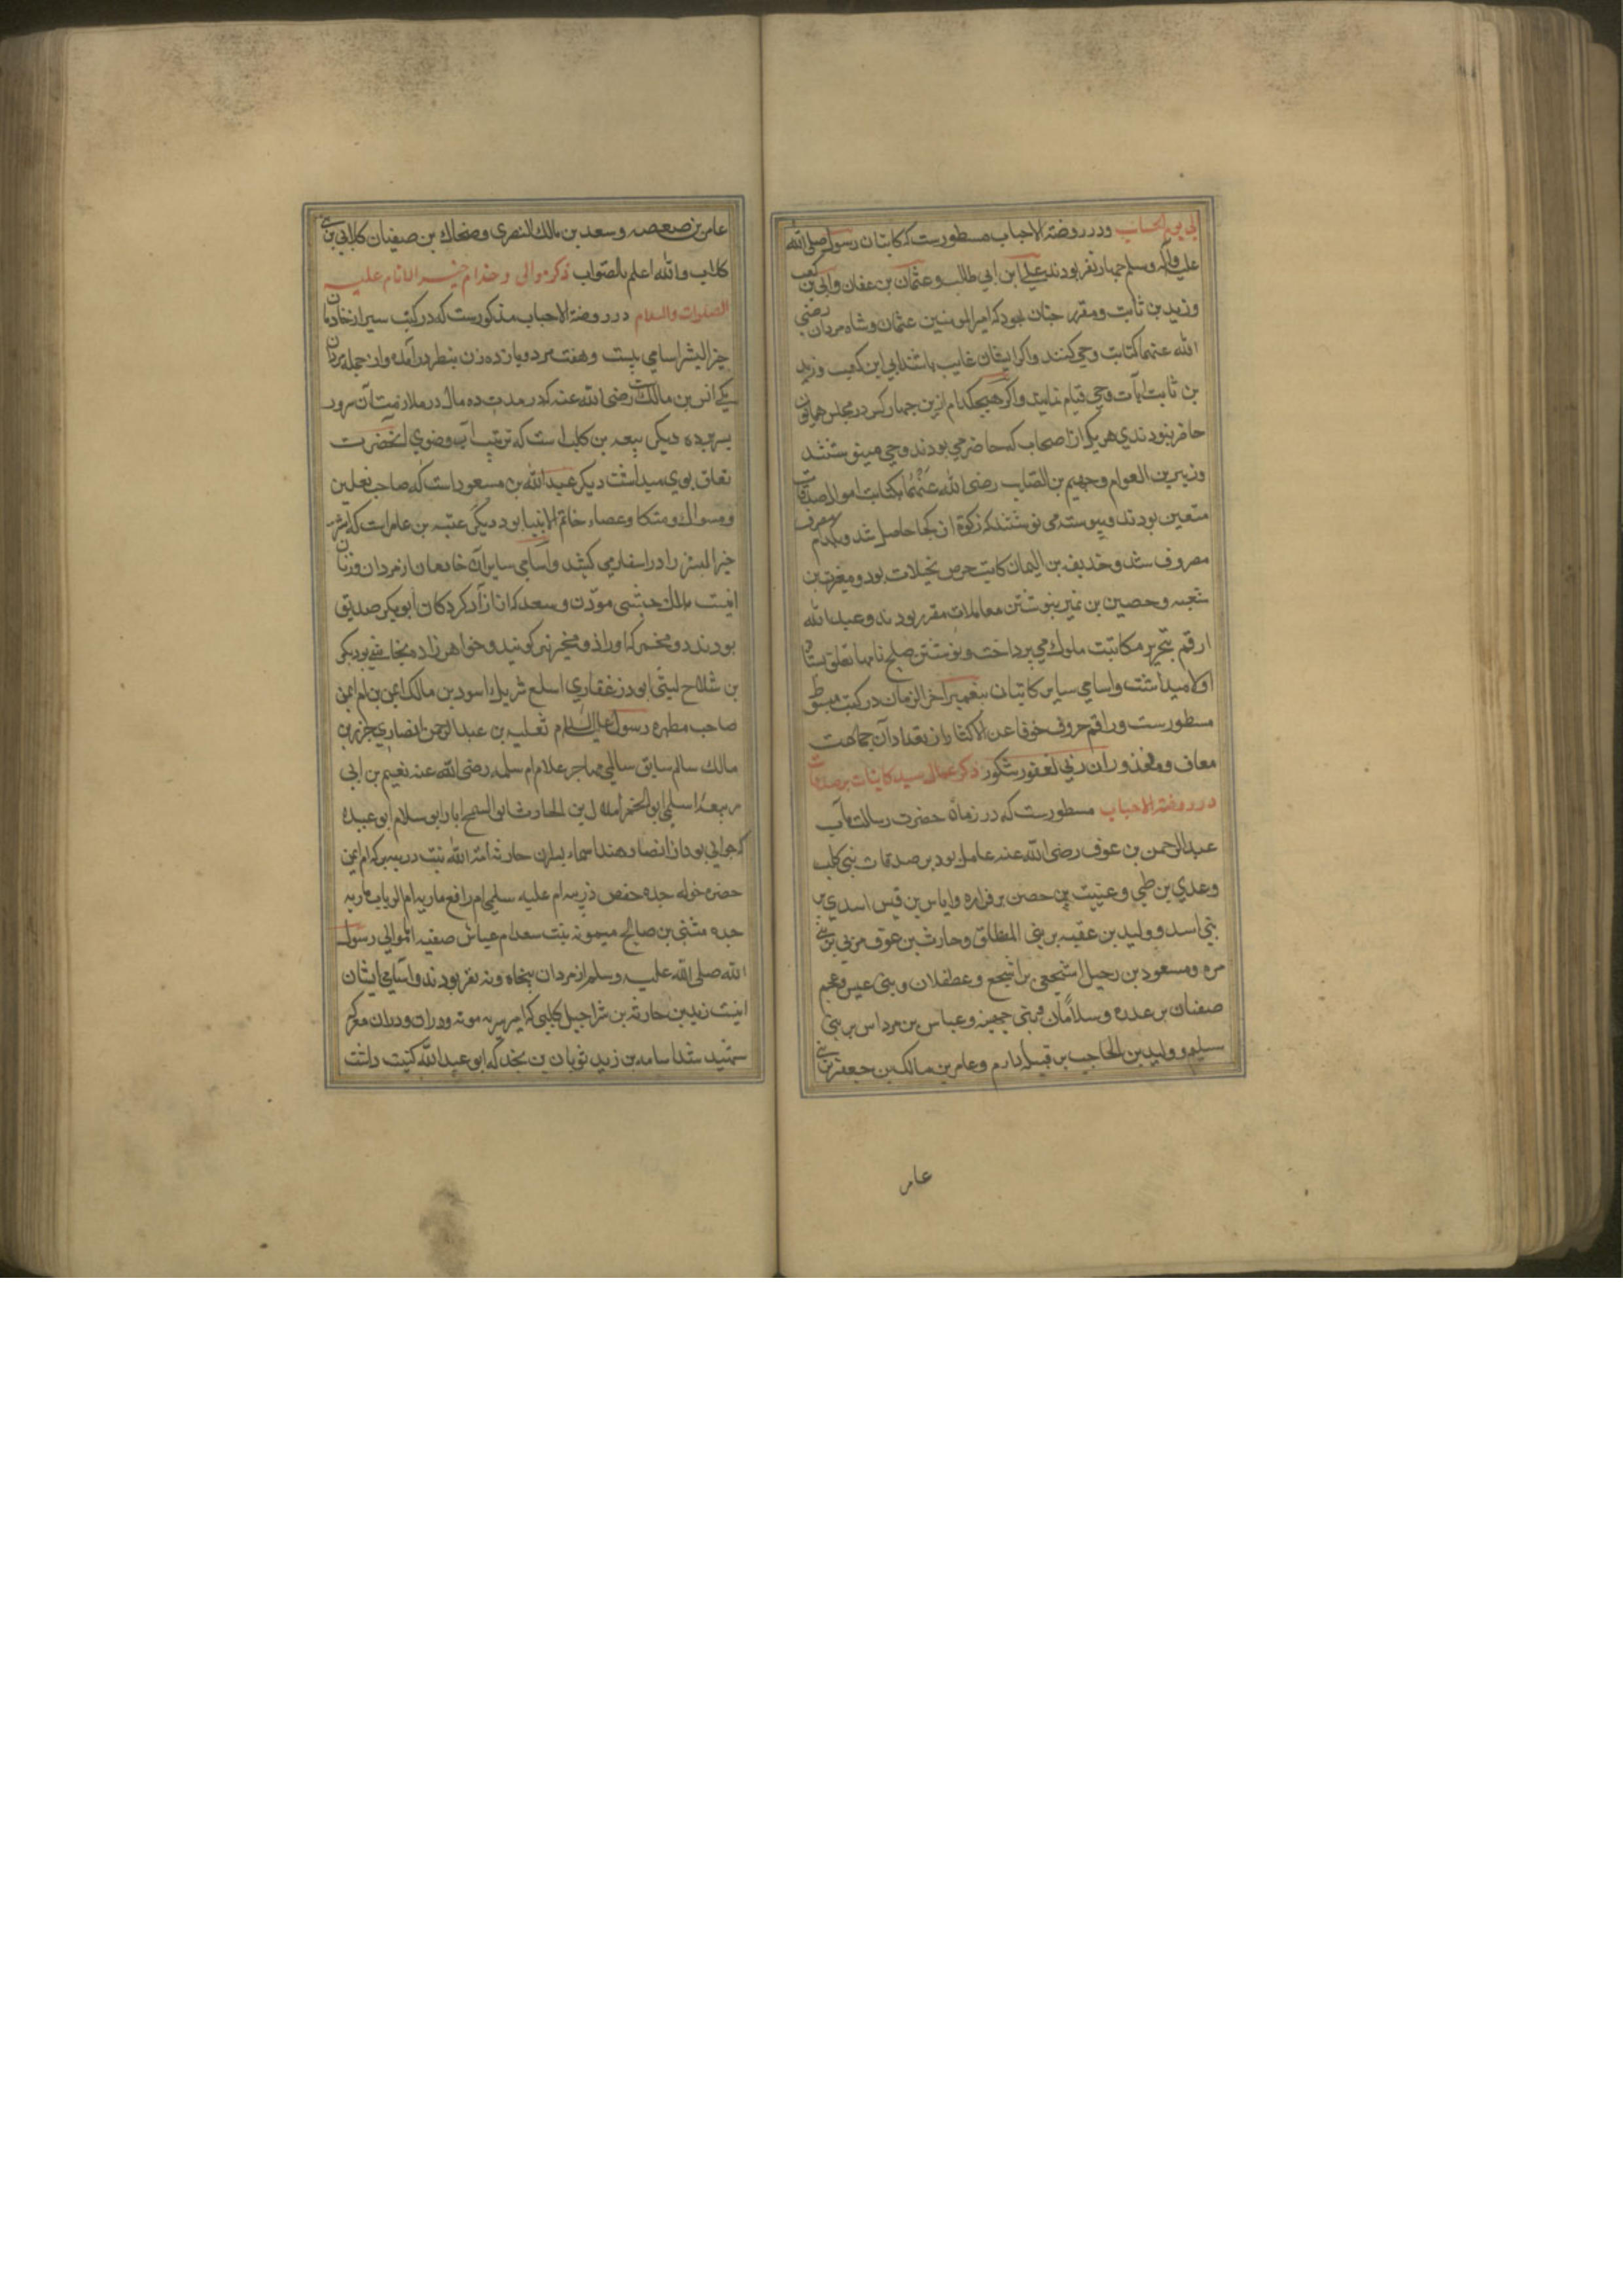 الی یوم الحساب ودر روضة الاحباب مسطورست که کاتبان رسول صلی الله
علیه وآله وسلم چهار نفر بودند علی ابن ابی طالب و عثمان بن عفان وابی بن کعب
وزید بن ثابت ومقرر چنان بود که امیر المومنین عثمان وشاه مردان رضی
الله عنهما کتابت وحی کنند واکر ایشان غایب باشند ابی ابن کعب وزید
بن ثابت بآن وحی قیام نمایند واکر هیچکدام ازین چهار کس در مجلس همایون
حاضر نبودندی هریک از اصحاب که حاضر می بودند وحی مینوشتند
وزبیر بن العوام وجهیم بن الصلت رضی الله عنهما بکتابت اموال صدقات
متعین بودند و پیوسته می نوشتند که زکوة از کجا حاصل شد وبکدام مصرف
مصروف شد وحذیفه بن الیمان کاتب خرص نخیلات بود ومغیرة بن
شعبه وحصین بن نمیر بنوشتن معاملات مقرر بودند وعبد الله
ارقم بتحریر مکاتبت ملوک می پرداخت ونوشتن صلح نامها تعلق
میداشت واسامی سایر کاتبان پیغمبر آخر الزمان در کتب
مسطورست وراقم حروف خوفا عن الاکثار از تعداد آن جماعت
معاف ومعذور ان ربی لغفور شکور ذکر عمال سید کاینات بر صدقات
در روضة الاحباب مسطورست که در زمان حضرت رسالت مآب
عبد الرحمن بن عوف رضی الله عنه عامل بود بر صدقات بنی کلب
وعدی بن طی و عنیت بن حصن بر فزاره وایاس بن قیس اسدی بر
بنی اسد و ولید بن عقبه بر بنی المطلق وحارث بن عوف مزنی بر بنی
مره ومسعود بن رحیل اشجعی بر اشجع و عطفلان و بنی عبس وعجم
صفنان بر عدره وسلامان وبنی جهینه وعباس بن مرداس بر بنی
سلیم وولید بن الحاجب بر قبیله دارم وعامر بن مالک بن جعفر بر بنی
عامر
عامر بن صعصعه وسعد بن مالک النصری وضحاک بن صیفیان کلابی بر بنی
کلاب والله اعلم بالصواب ذکر موالی وخدام خیر الانام علیه
الصلوات والسلام در روضة الاحباب مذکورست که در کتب سیر از خادمان
خیر البشر اسامی بیست وهفت مرد ویازده زن بنظر درآمده واز جمله مردان
یکی انس بن مالک است رضی الله عنه که در مدت ده سال در ملازمت آن سرور
بسر برده دیکر ربیعه بن کلب است که ترتیب آب وضوی آنحضرت
تعلق بوی میداشت دیکر عبد الله بن مسعود است که صاحب نعلین
ومسواک ومتکا وعصاء خاتم الانبیا بود دیکر عتبه بن عامر است که
خیر البشر را در اسفار می کشید واسامی سایر آن خادمان از مردان وزنان
اینست بلال حبشی موذن وسعد که آزاد کردکان ابوبکر صدیق
بودند
بن شداح لیثی ابوذر غفاری اسلع شریک اسود بن مالک ایمن بن ام ایمن
صاحب مطهره رسول علیه السلام ثعلبه بن عبد الرحمن انصاری جزء بن
مالک سالم سابق سالمی مهاجر غلام ام سلمه رضی الله عنه نعیم بن ابی
ربیعه اسلمی ابو الحمرا هلال بن الحارث ابو السمح ایاد ابو سلام ابو عبیده
حضره خوله جده حفص ام علیه سلمی ام رافع ماریه ام الرباب ماریه
جده مثنی بن صالح میمونه بنت سعد ام عیاش صفیه اما موالی رسول
الله صلی الله علیه وسلم از مردان پنجاه ونه نفر بودند واسامی ایشان
اینست زید بن حارثه بن شراحیل کلبی که امیر سریه موته بود ودران معرکه
شهید شد اسامه بن زید ثوبان بن بجدد که ابو عبد الله کنیت داشت